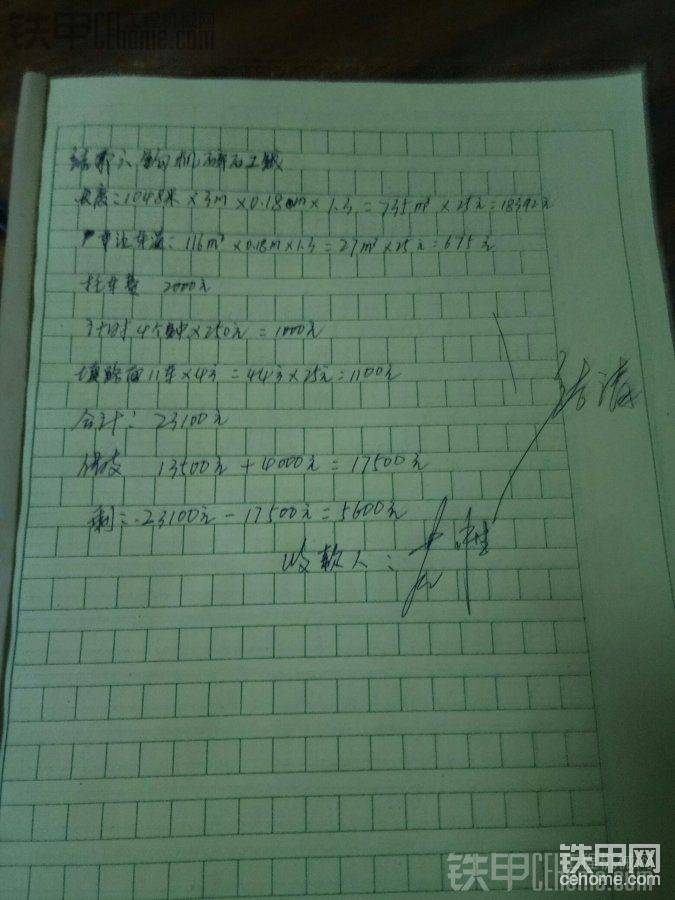 铁甲 工程机械网
CEhome.com
钩机碎石工账
长度:1048米×3m×0.18m×1.3=735m³×25元=18392元
116m²×0.18m×1.3=27m³×25元=675元
托车费 2000元
计时4个钟×250元=1000元
填路面11车×4方=44方×25元=1100元
合计:23100元
借支 13500元+4000元=17500元
剩:23100元-17500元=5600元
收款人:
结清
铁甲网
cehome.com